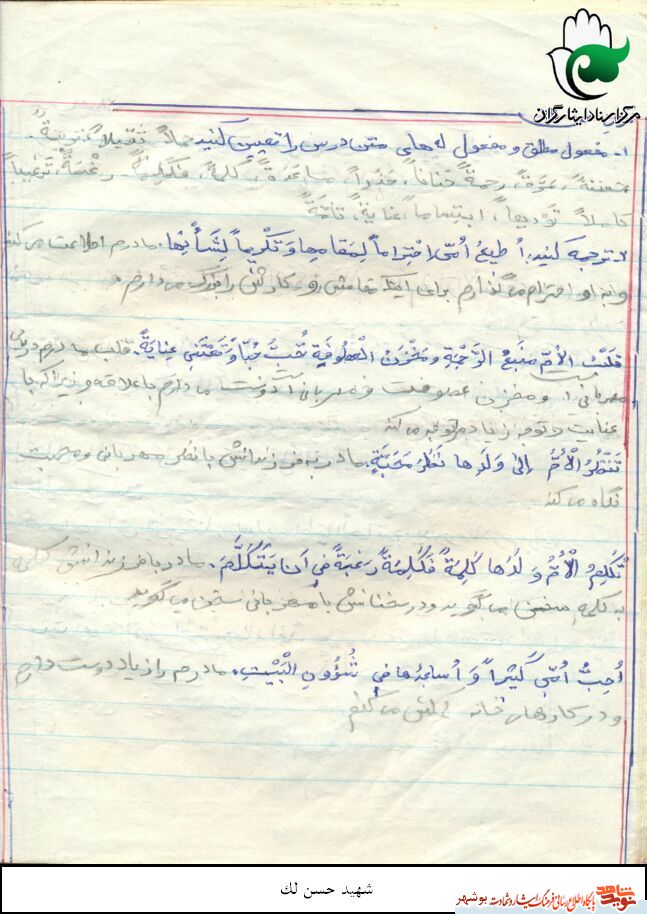 مرکز اسناد ایثارگران
۱- مفعول مطلق و مفعول له های متن درس را تعیین کنید حملاً ثقیلاً
مودّةً، رحمةً، حناناً، حذراً، مساعدةً، کلمةً، فکلمةً، رغبةً، ترغیباً
کاملاً، ابتساماً، عنایةً، تامّةً
۲- ترجمه کنید: اُطیعُ اُمّی اِحْتِراماً لِمَقامِها وَ تَکْریماً لِشَأْنِها. مادرم اطاعت می کنم
و به او احترام می گذارم برای اینکه مقامش و کارش را بزرگ می دارم
قَلْبُ الْاُمِّ مَنْبَعُ الرَّحْمَةِ وَ مَخْزَنُ الْعُطُوفَةِ تُحِبُّ حُبّاً وَ تَعْتَنی عِنایَةً. قلب مادرم دریای
مهربانی و مخزن عطوفت و مهربانی است دوست مادرم با علاقه و
عنایت و توجه زیاد توجه می کند
تَنْظُرُ الْاُمُّ اِلی وَلَدِها نَظَرَ مَحَبَّةٍ. مادر به فرزندانش با نظر مهربانی و محبت
نگاه می کند
تُکَلِّمُ الْاُمُّ وَلَدَها کَلِمَةً فَکَلِمَةً رَغْبَةً فی اَن یَتَکَلَّمَ. مادر با فرزندانش کلمه
به کلمه سخن می گوید و در سخنانش با مهربانی سخن می گوید
اُحِبُّ اُمّی کَثیراً وَ اُساعِدُها فی شُؤُونِ الْبَیْتِ. مادرم را زیاد دوست دارم
و در کارهای خانه کمکش می کنم
شهید حسن لك
نوید شاهد پایگاه اطلاع رسانی فرهنگ ایثار و شهادت بوشهر